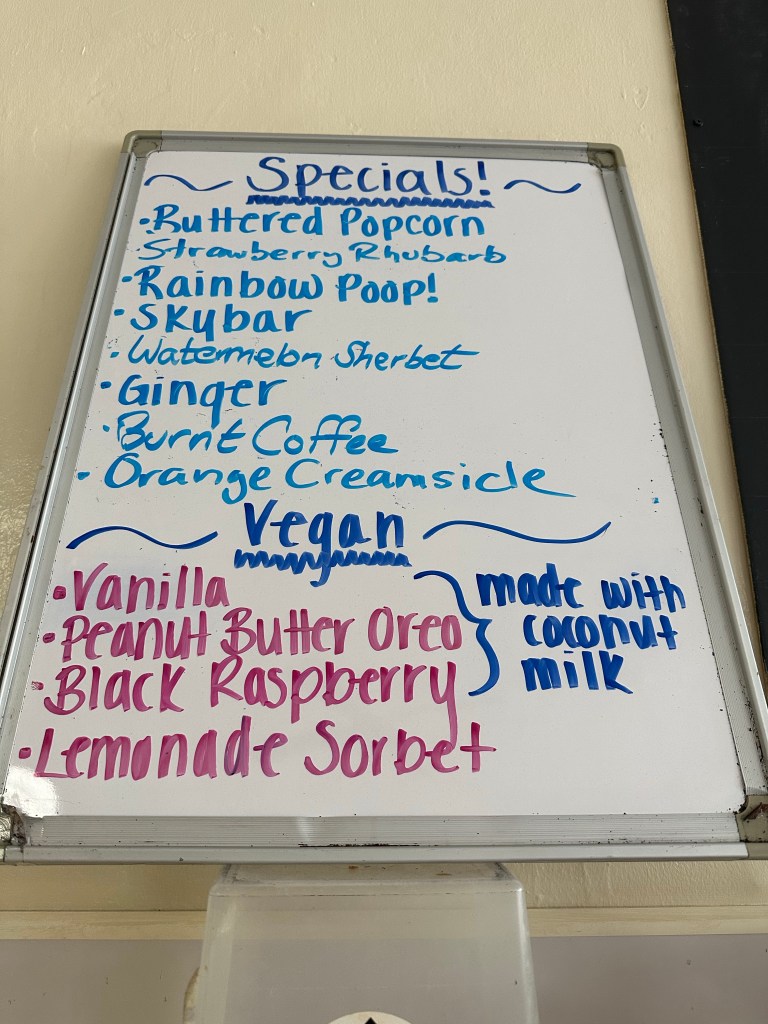 ~ Specials! ~
• Buttered Popcorn
• Strawberry Rhubarb
• Rainbow Poop!
• Skybar
• Watermelon Sherbet
• Ginger
• Burnt Coffee
• Orange Creamsicle
~ Vegan ~
• Vanilla
• Peanut Butter Oreo
• Black Raspberry
made with
coconut
milk
• Lemonade Sorbet